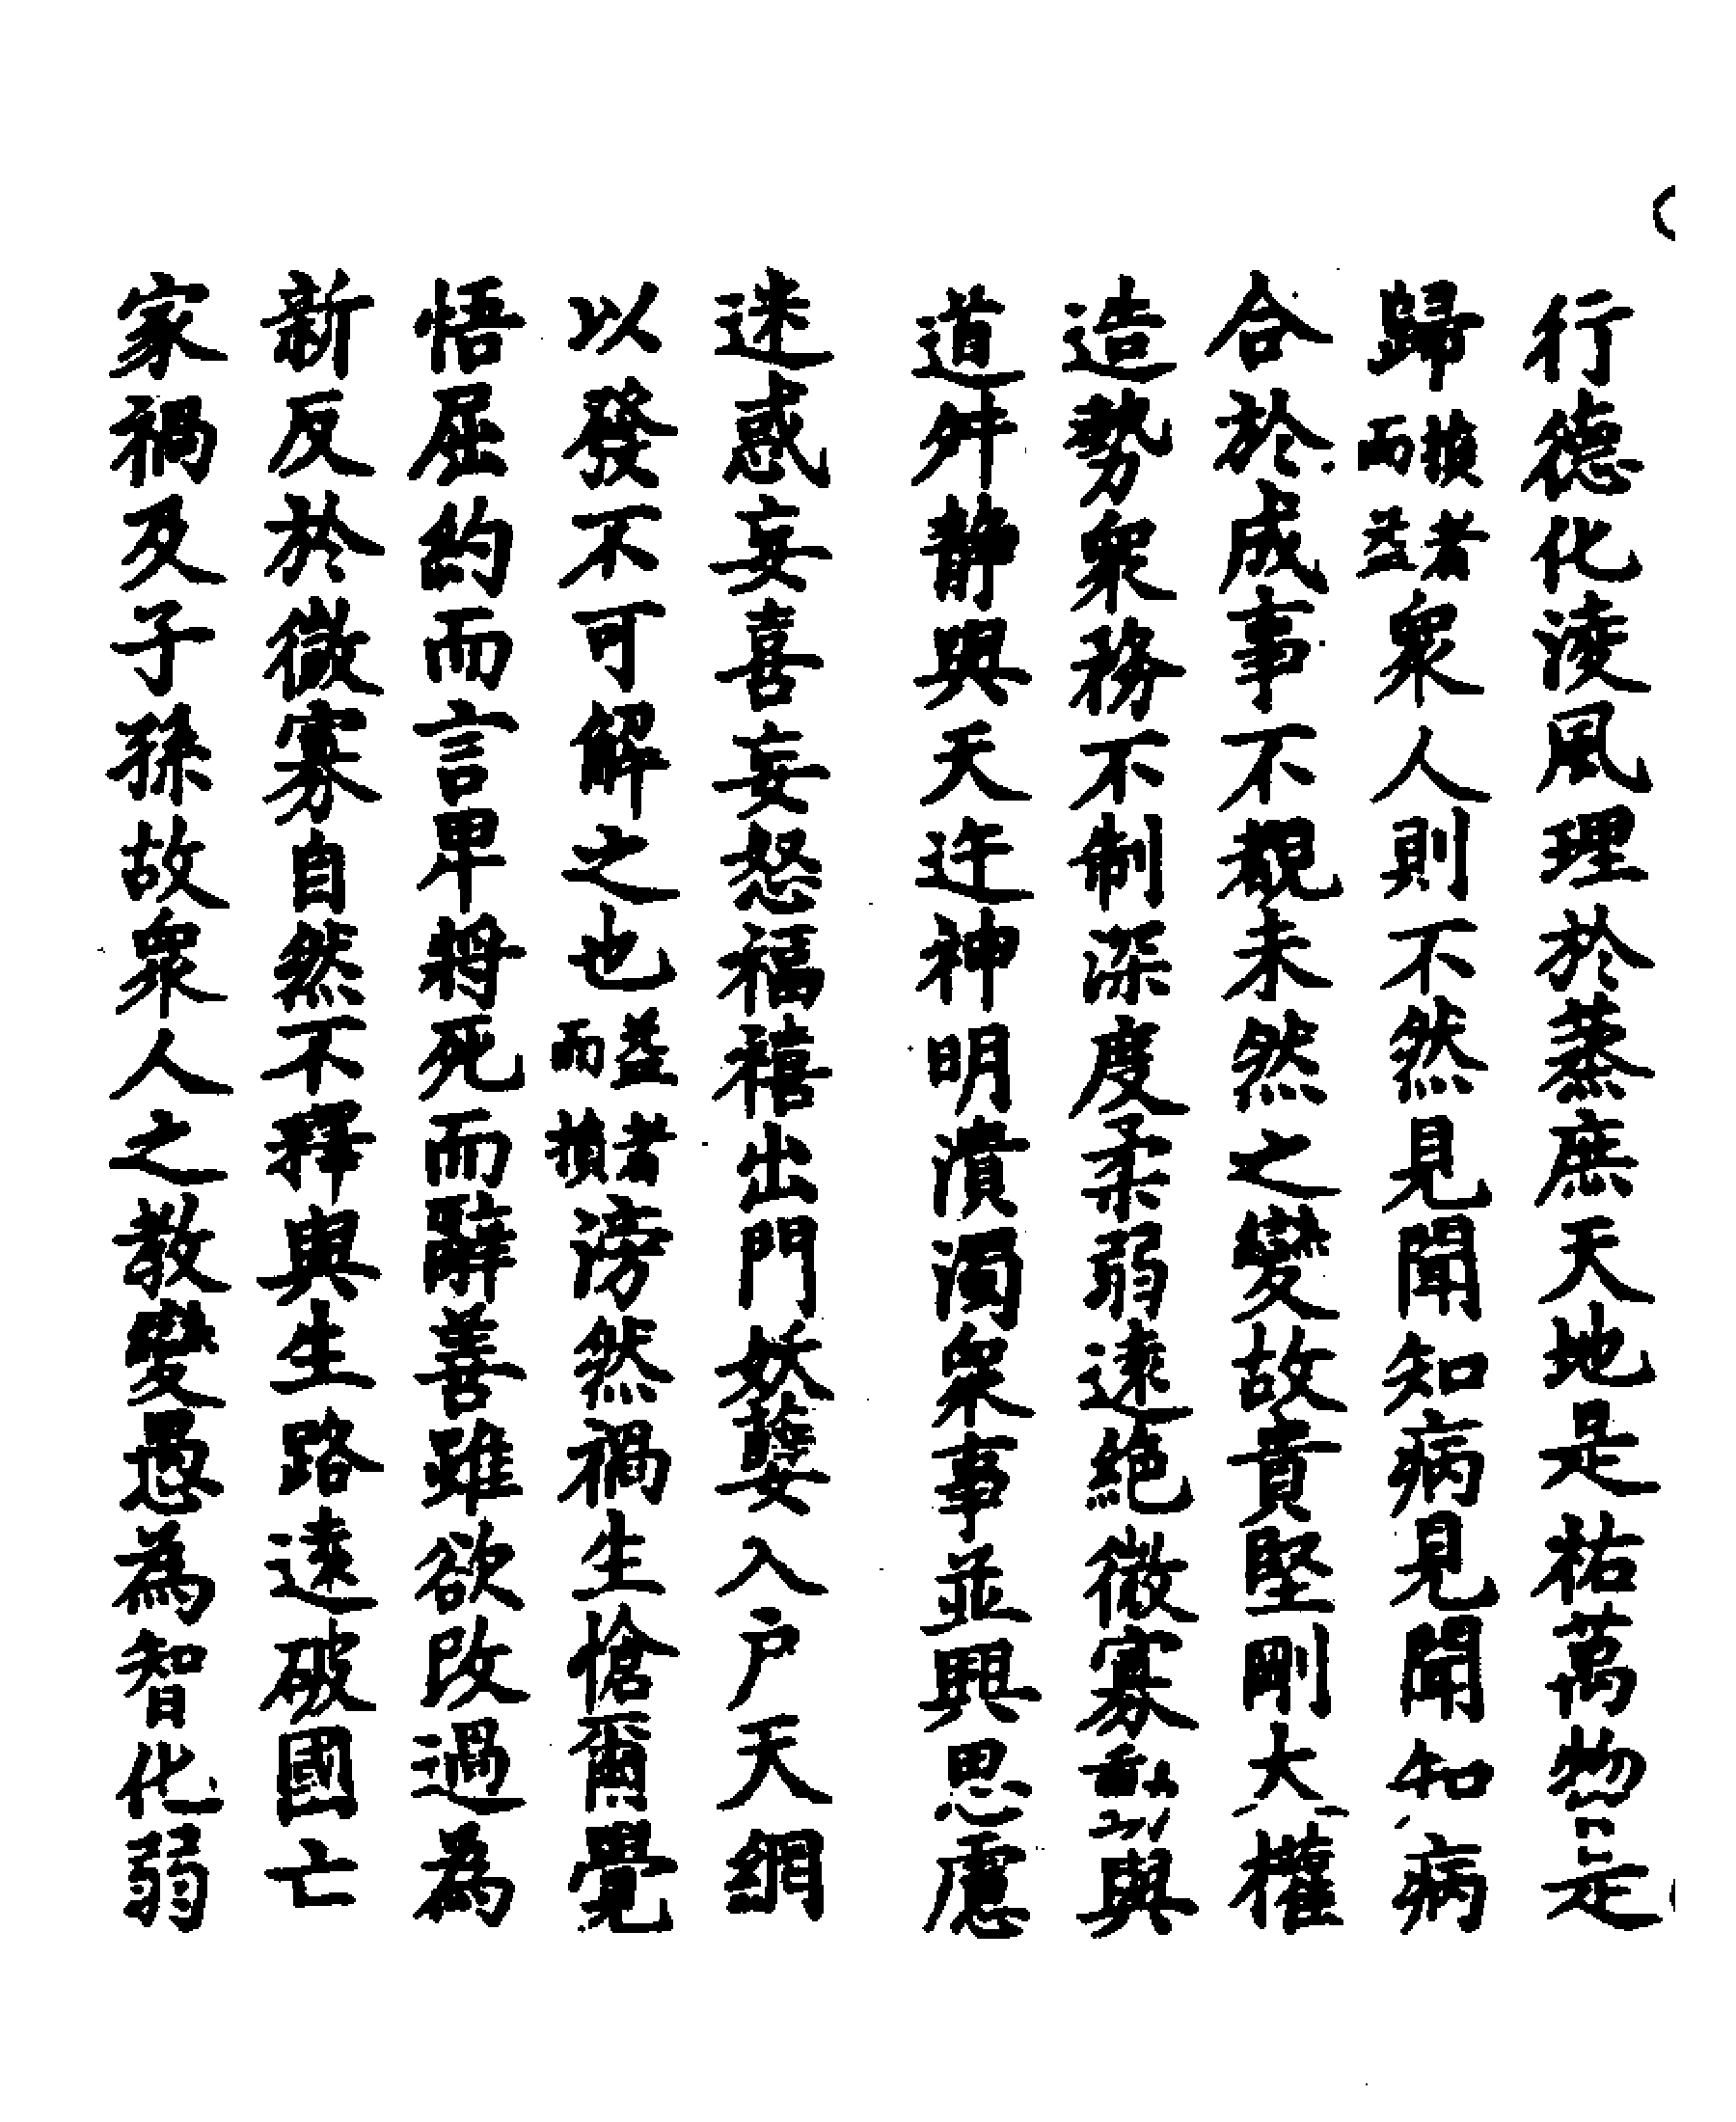 行德化淩風理於蒸庶天地是祐萬物是
歸損者而益眾人則不然見聞知病見聞知病
合於成事不覩未然之變故貴堅剛大權
造勢衆務不制深度柔弱遠絕微寡動以與
道舛静與天迕神明潰濁衆事並興思慮
迷惑妄喜妄怒福禧出門妖孽入户天網
以發不可解之也益者而損滂然禍生愴爾覺
悟屈約而言卑將死而辭善雖欲改過為
新反於微寡自然不釋與生路遠破國亡
家禍及子孫故衆人之教變愚為智化弱